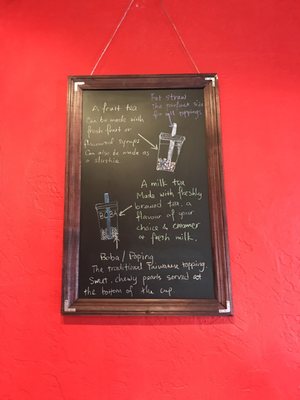 A fruit tea
Can be made with
fresh fruit or
flavoured syrups
Can also be made as
a slushie
Fat straw
The perfect size
for all toppings
A milk tea
Made with freshly
brewed tea, a
flavour of your
choice & creamer
or fresh milk.
BOBA
Boba / Poping
The traditional Taiwanese topping
Sweet, chewy pearls served at
the bottom of the cup